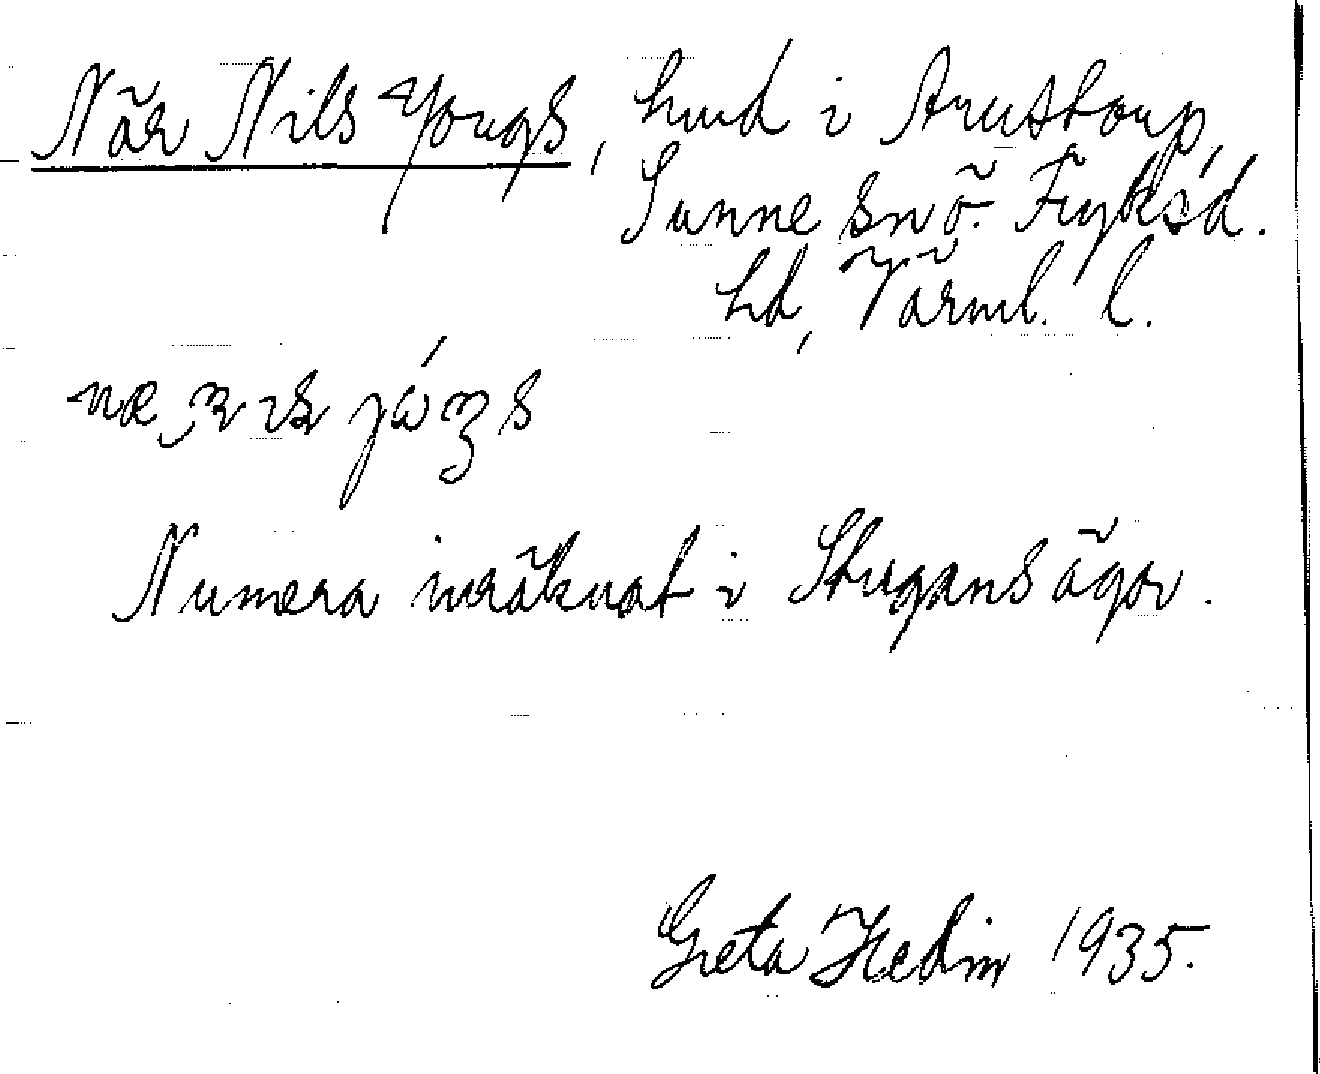 När Nils Jongs, hmd i Arnstorp,
Sunne sn ö. Fryksd.
hd, Värml. l.
Numera inräknat i Stugans ägor.
Greta Hedin 1935.